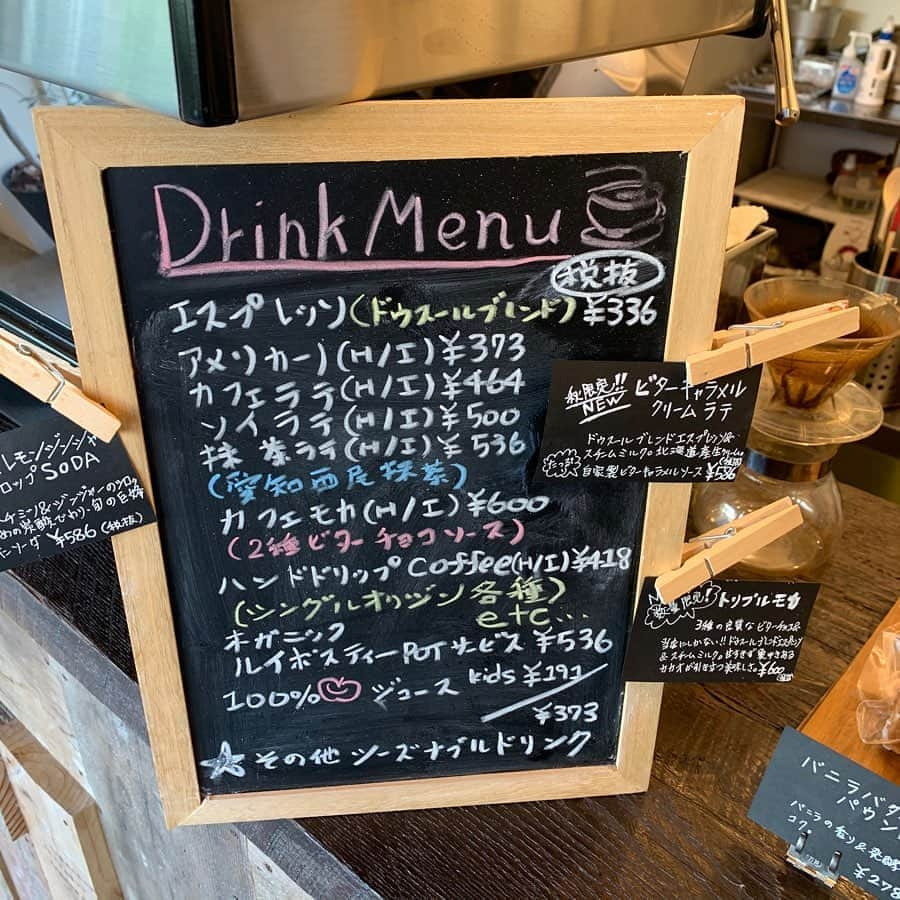 Drink Menu
税抜
エスプレッソ(ドゥスールブレンド) ¥336
アメリカーノ(H/I) ¥373
カフェラテ(H/I) ¥464
ソイラテ(H/I) ¥500
抹茶ラテ(H/I) ¥536
(愛知西尾抹茶)
カフェモカ(H/I) ¥600
(2種ビターチョコソース)
ハンドドリップ Coffee(H/I) ¥418
(シングルオリジン各種)
etc...
オーガニック
ルイボスティーPOTサービス ¥536
100% ジュース kids ¥191
¥373
☆その他 シーズナブルドリンク
レモンジンジャー
ロップ SODA
¥586 (税抜)
限定!! ビターキャラメル
NEW クリームラテ
ドゥスールブレンドエスプレッソ
スチームミルク。北海道産生クリーム。
自家製ビターキャラメルソース
限定! トリプルモカ
3種の良質なビターチョコ
当店にしかない!! ドゥスールブレンド
&スチームミルク。
¥600
バニラバ
パウン
バニラの香り&発酵
コク。
¥278